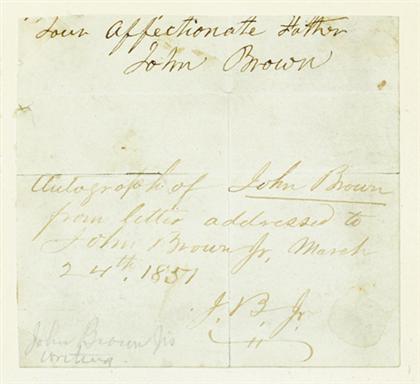 Your Affectionate Father
John Brown
Autograph of John Brown
from letter addressed to
John Brown Jr, March
24th. 1851
J. B. Jr.
John Brown Jrs
writing.